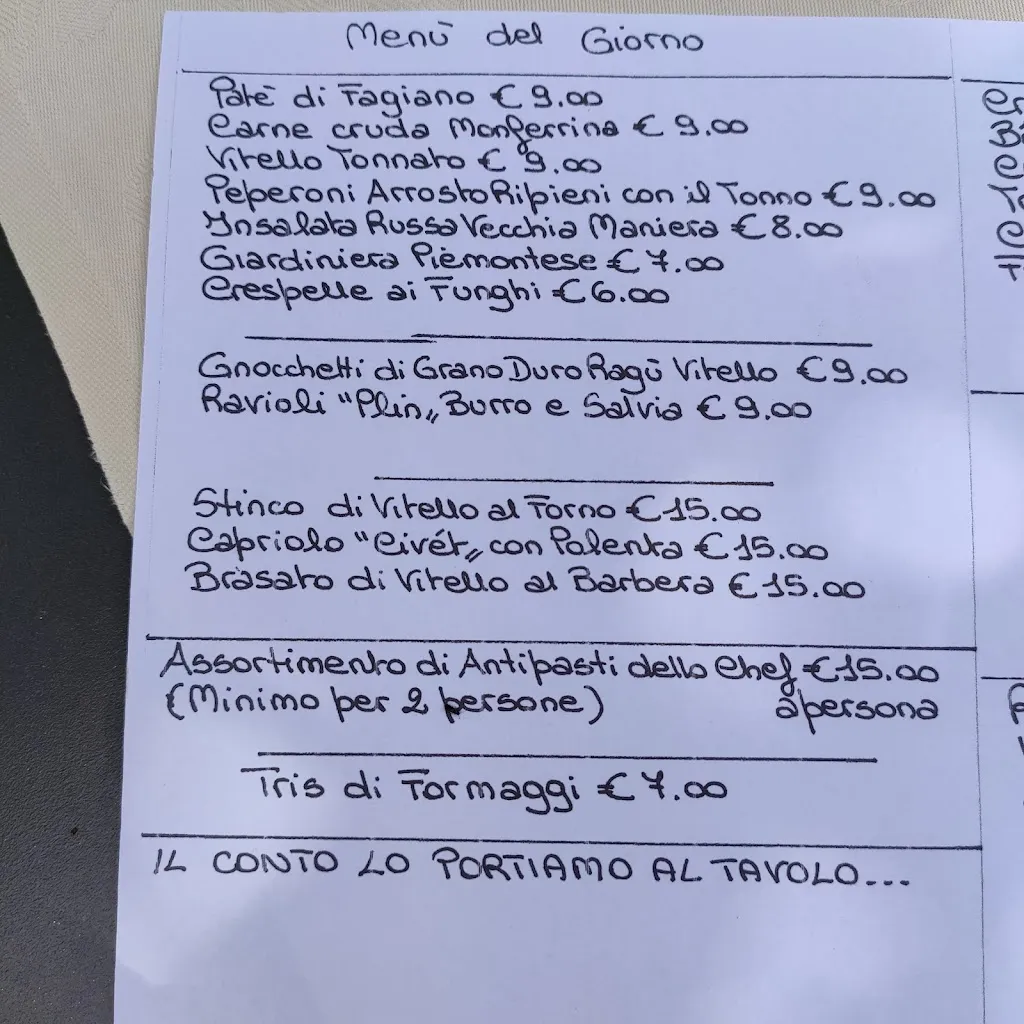 Menù del Giorno
Patè di Fagiano € 9.00
Carne cruda Monferrina € 9.00
Vitello Tonnato € 9.00
Peperoni Arrosto Ripieni con il Tonno € 9.00
Insalata Russa Vecchia Maniera € 8.00
Giardiniera Piemontese € 7.00
Crespelle ai Funghi € 6.00
Gnocchetti di Grano Duro Ragù Vitello € 9.00
Ravioli "Plin" Burro e Salvia € 9.00
Stinco di Vitello al Forno € 15.00
Capriolo "Civét" con Polenta € 15.00
Brasato di Vitello al Barbera € 15.00
Assortimento di Antipasti dello Chef € 15.00
(Minimo per 2 persone) a persona
Tris di Formaggi € 7.00
IL CONTO LO PORTIAMO AL TAVOLO...